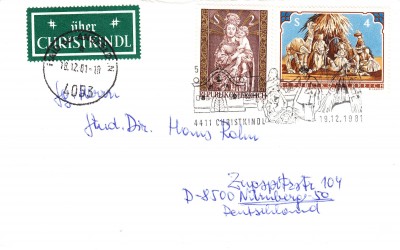 über
CHRISTKINDL
S 2
S 4
18.12.81-18
4053
5
REPUBLIK ÖSTERREICH
4411 CHRISTKINDL
19.12.1981
Stud. Dir. Hans Kohn
104
D-8500 Nürnberg-50
Deutschland